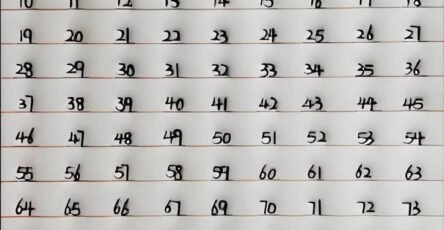 10 11 12 13 14 15 16 17 18
19 20 21 22 23 24 25 26 27
28 29 30 31 32 33 34 35 36
37 38 39 40 41 42 43 44 45
46 47 48 49 50 51 52 53 54
55 56 57 58 59 60 61 62 63
64 65 66 67 69 70 71 72 73